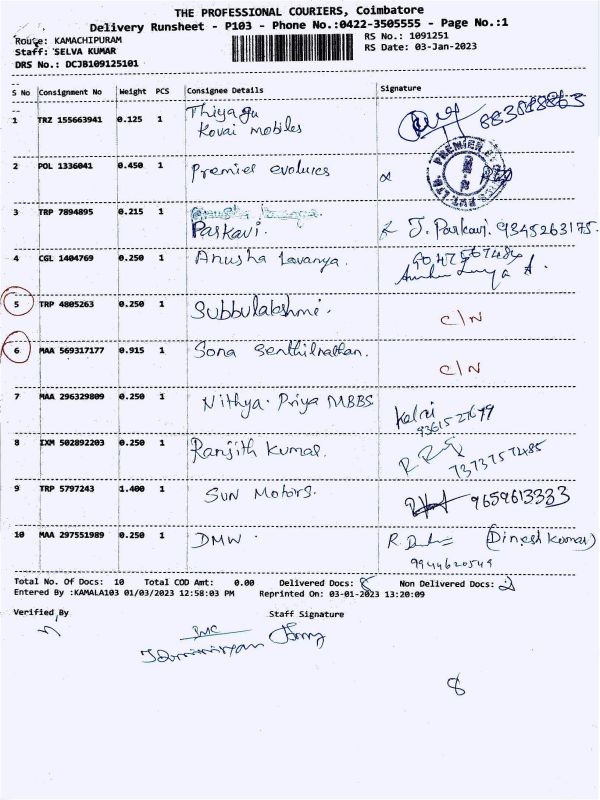 THE PROFESSIONAL COURIERS, Coimbatore
Delivery Runsheet - P103 - Phone No.:0422-3505555 - Page No.:1
Route: KAMACHIPURAM RS No.: 1091251
Staff: SELVA KUMAR RS Date: 03-Jan-2023
DRS No.: DCJB109125101
S No Consignment No Weight PCS Consignee Details Signature
1 TRZ 155663941 0.125 1 Thiyagu
Kovai mobiles
2 POL 1336041 0.450 1 Premier evolvics
PREMIER
3 TRP 7894895 0.215 1
Parkavi. J. Parkavi. 9345263175.
4 CGL 1404769 0.250 1 Anusha Lavanya.
5 TRP 4805263 0.250 1 Subbulakshmi. C/N
6 MAA 569317177 0.915 1 Sona Senthilnathan. C/N
7 MAA 296329809 0.250 1 Nithya. Priya MBBS
8 IXM 502892203 0.250 1 Ranjith Kumar. 7373757485
9 TRP 5797243 1.400 1 Sun Motors. 9659613333
10 MAA 297551989 0.250 1 DMW. R. (Dinesh Kumar)
9944620549
Total No. Of Docs: 10 Total COD Amt: 0.00 Delivered Docs: 8 Non Delivered Docs: 2
Entered By :KAMALA103 01/03/2023 12:58:03 PM Reprinted On: 03-01-2023 13:20:09
Verified By Staff Signature
8